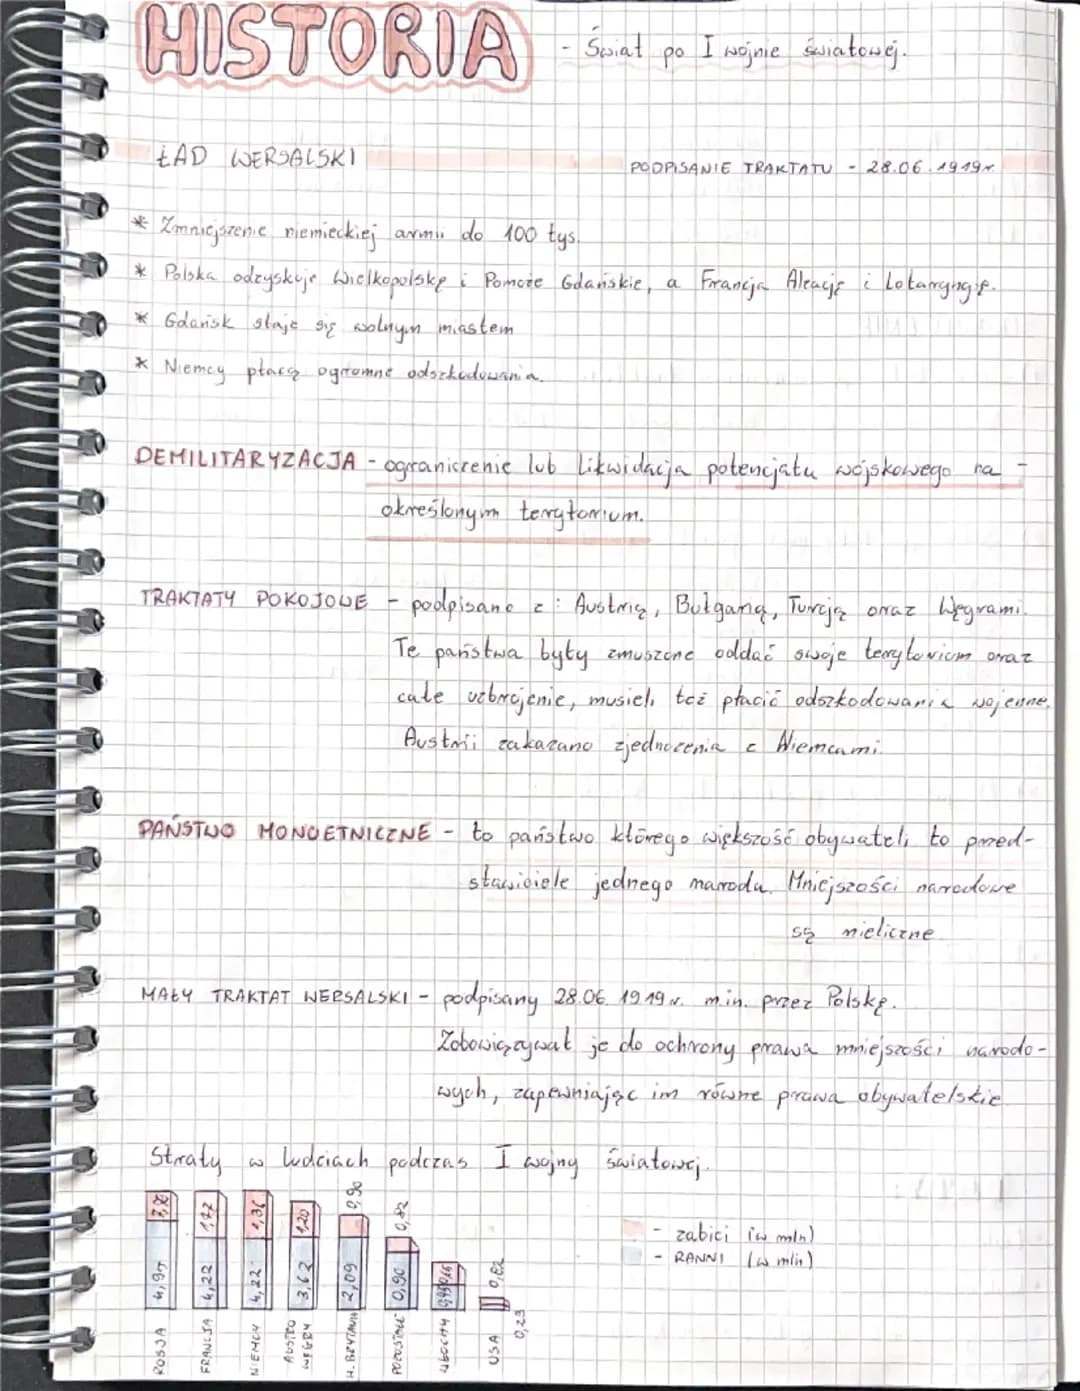 HISTORIA - Świat po I wojnie światowej.
ŁAD WERSALSKI
PODPISANIE TRAKTATU - 28.06.1919r.
* Zmniejszenie niemieckiej armii do 100 tys.
* Polska odzyskuje Wielkopolskę i Pomorze Gdańskie, a Francja Alzację i Lotaryngię.
* Gdańsk staje się wolnym miastem
* Niemcy płacą ogromne odszkodowania.
DEMILITARYZACJA - ograniczenie lub likwidacja potencjału wojskowego na -
określonym terytorium.
TRAKTATY POKOJOWE - podpisano z: Austrią, Bułgarią, Turcją oraz Węgrami.
Te państwa były zmuszone oddać swoje terytorium oraz
całe uzbrojenie, musieli też płacić odszkodowania wojenne.
Austrii zakazano zjednoczenia z Niemcami.
PAŃSTWO MONOETNICZNE - to państwo którego większość obywateli to przed-
stawiciele jednego narodu. Mniejszości narodowe
są nieliczne
MAŁY TRAKTAT WERSALSKI - podpisany 28.06.1919r. m.in. przez Polskę.
Zobowiązywał je do ochrony prawa mniejszości narodo-
wych, zapewniając im równe prawa obywatelskie
Straty w ludziach podczas I wojny światowej.
- zabici (w mln)
- RANNI (w mln)
ROSJA 4,95
FRANCJA 4,22
NIEMCY 4,22
AUSTRO WĘGRY 3,62 1,20
W. BRYTANIA 2,09 0,90
POZOSTAŁE 0,90 0,82
WŁOCHY
USA
0,23